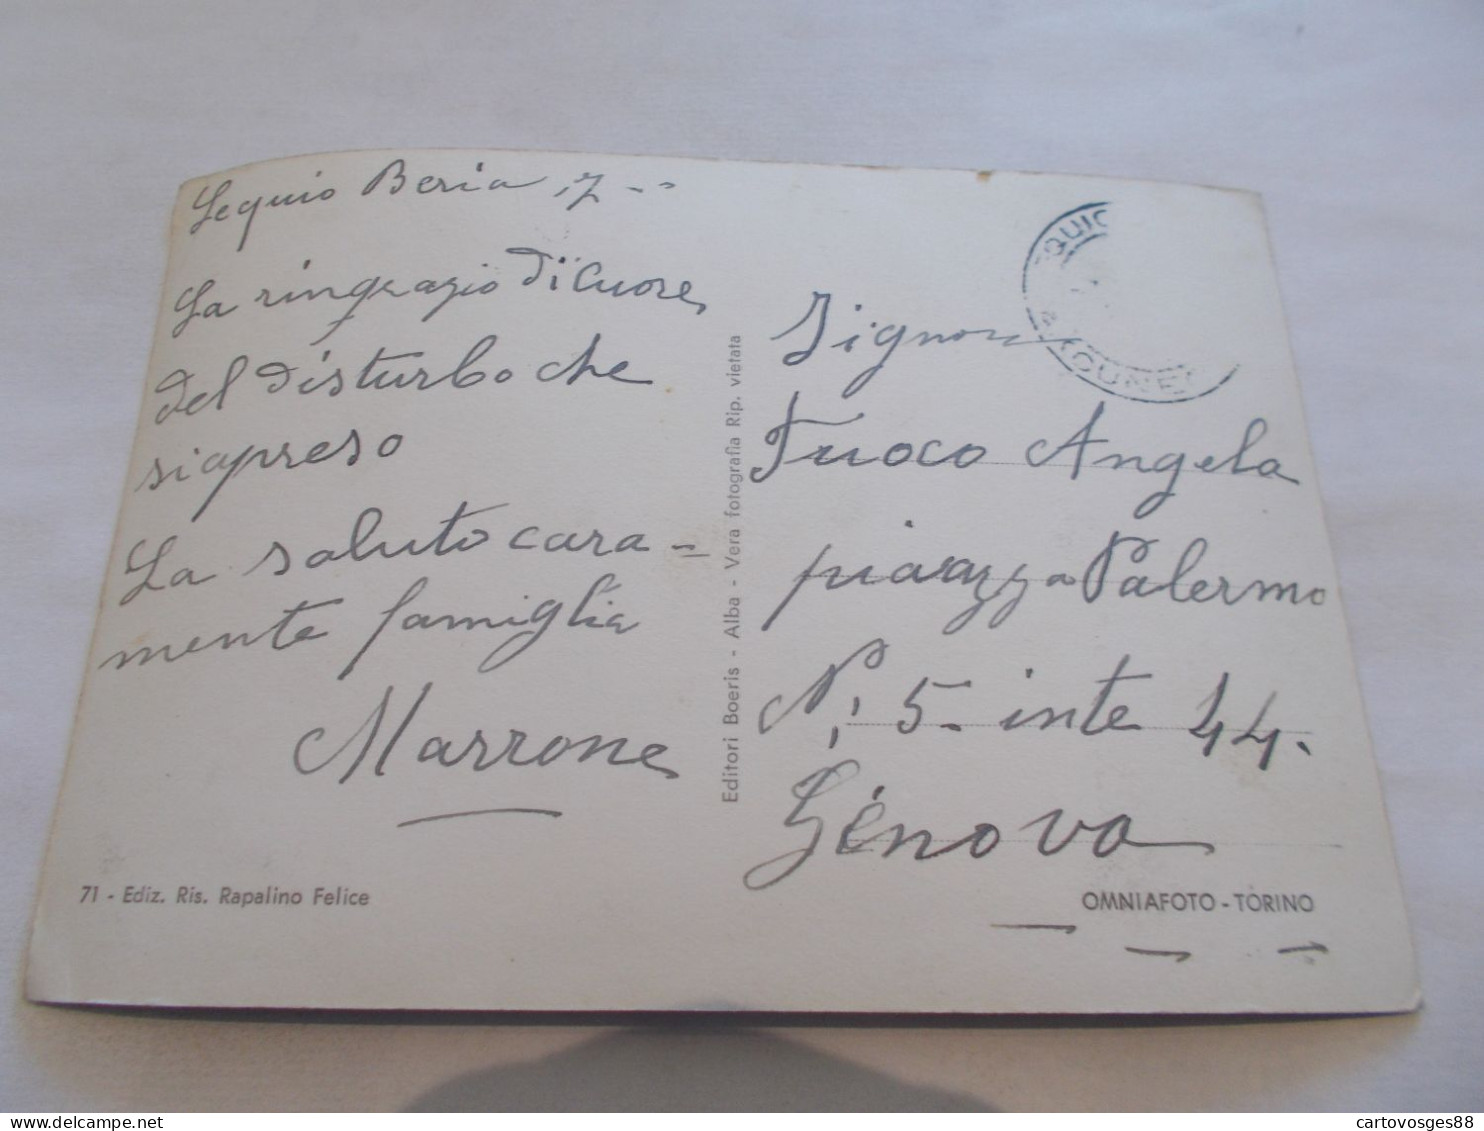 Lequio Beria, 7 - -
La ringrazio di Cuore,
del disturbo che
siapreso
La saluto cara =
mente famiglia
Marrone
71 - Ediz. Ris. Rapalino Felice
Editori Boeris - Alba - Vera fotografia Rip. vietata
EQUIO
CUNEO
Signora
Fuoco Angela
piazza Palermo
N; 5 - inte 44.
Génova
OMNIAFOTO - TORINO
www.delcampe.net
cartovosges88